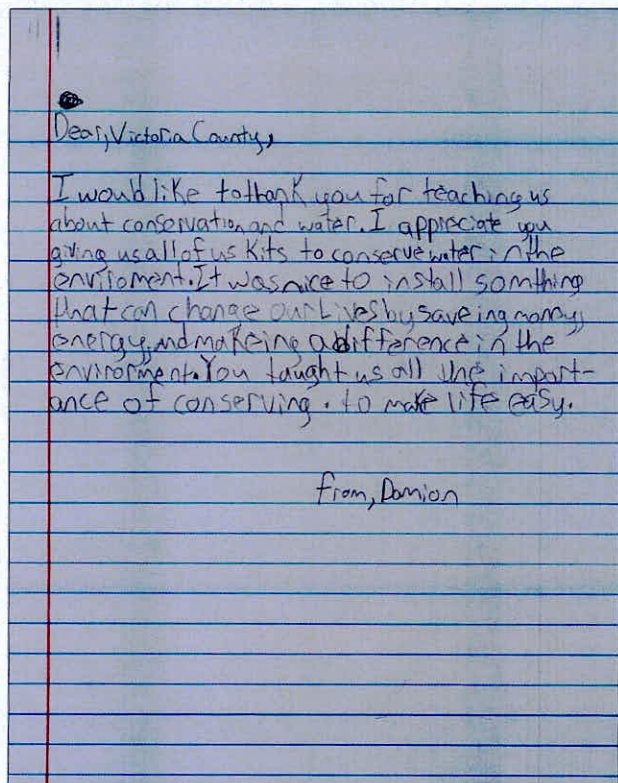 Dear, Victoria County,
I would like to thank you for teaching us
about conservation and water. I appreciate you
giving us all of us Kits to conserve water in the
enviroment. It was nice to install somthing
that can change our Lives by saveing monny,
energy, and makeing a difference in the
envirorment. You taught us all the import-
ance of conserving. to make life easy.
from, Damion